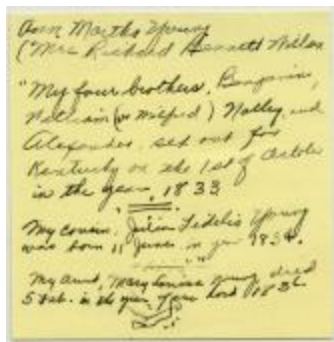 Ann Martha Young
(Mrs Richard Bennett Willett
"My four brothers, Benjamin,
William (or Wilfred) Nalley, and
Alexander, set out for
Kentucky on the 1st of October
in the year, 1833
My cousin, Julian Fidelis Young
was born 11 June in year 1834.
My aunt, Mary Louisa Young died
5 Feb. in the year, Your Lord 1836